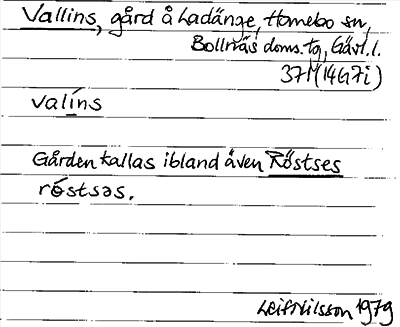 Vallins, gård å Ladänge, Hanebo sn,
Bollnäs doms. tg, Gävl. l.
37M (14G7i)
valíns
Gården kallas ibland även Röstses
rǿstsəs.
Leif Nilsson 1979